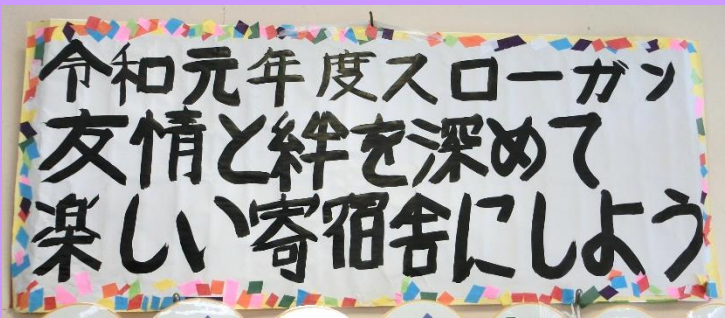 令和元年度スローガン
友情と絆を深めて
楽しい寄宿舎にしよう